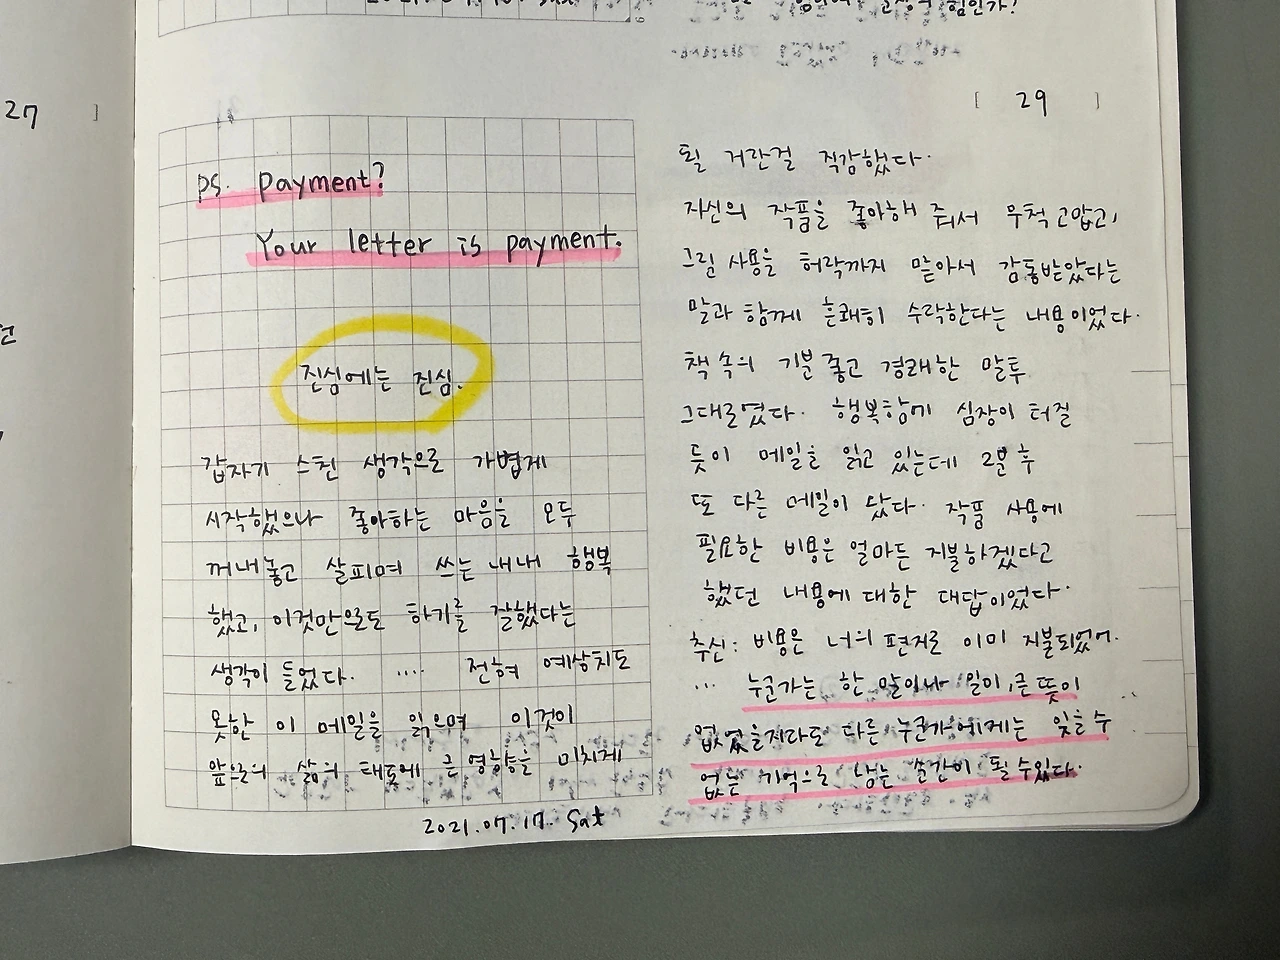 27 ]
[ 29 ]
ps. payment?
Your letter is payment.
진심에는 진심.
갑자기 스친 생각으로 가볍게
시작했으나 좋아하는 마음을 모두
꺼내놓고 살피며 쓰는 내내 행복
했고, 이것만으로도 하기를 잘했다는
생각이 들었다. .... 전혀 예상치도
못한 이 메일을 읽으며 이것이
앞으로의 삶의 태도에 큰 영향을 미치게
2021.07.17. Sat
될 거란걸 직감했다.
자신의 작품을 좋아해 줘서 무척 고맙고,
그림 사용을 허락까지 맡아서 감동받았다는
말과 함께 흔쾌히 수락한다는 내용이었다.
책 속의 기분 좋고 경쾌한 말투
그대로였다. 행복함에 심장이 터질
듯이 메일을 읽고 있는데 2분 후
또 다른 메일이 왔다. 작품 사용에
필요한 비용은 얼마든 지불하겠다고
했던 내용에 대한 대답이었다.
추신: 비용은 너의 편지로 이미 지불되었어.
... 누군가는 한 말이나 일이, 큰 뜻이
없었을지라도 다른 누군가에게는 잊을 수
없는 기억으로 남는 순간이 될 수 있다.